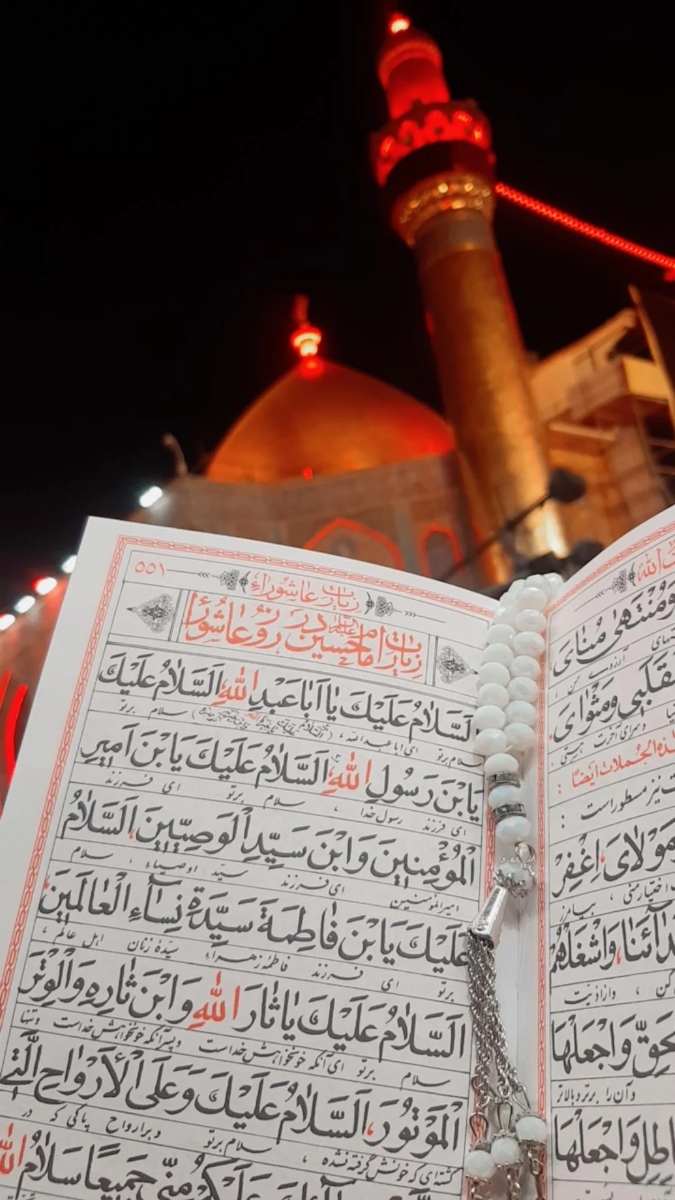 ۵۵۱
زیارت عاشوراء
زیارت امام حسین در روز عاشورا
اَلسَّلامُ عَلَيْكَ يا اَبا عَبْدِ اللهِ اَلسَّلامُ عَلَيْكَ
سلام برتو ای ابا عبدالله، سلام برتو
يَا بْنَ رَسُولِ اللهِ اَلسَّلامُ عَلَيْكَ يَا بْنَ اَميرِ
ای فرزند رسول خدا، سلام برتو ای فرزند
الْمُؤْمِنينَ وَابْنَ سَيِّدِ الْوَصِيّينَ، اَلسَّلامُ
امیرالمؤمنین ای فرزند سید اوصیاء، سلام
عَلَيْكَ يَا بْنَ فاطِمَةَ سَيِّدَةِ نِساءِ الْعالَمينَ
برتو ای فرزند فاطمه زهراء سیده زنان اهل عالم،
اَلسَّلامُ عَلَيْكَ يا ثارَ اللهِ وَابْنَ ثارِهِ وَالْوِتْرَ
سلام برتو ای آنکه خونخواهش خداست و پسر آنکه خونخواهش خداست و تنها
الْمَوْتُورَ، اَلسَّلامُ عَلَيْكَ وَعَلَى الْاَرْواحِ الَّتي
کشته‌ای که خونش گرفته نشده، سلام برتو و بر ارواح پاکی که در
عَلَيْكُمْ مِنّي جَميعًا سَلامُ اللهِ
الله
وَمُنْتَهى مُنايَ
آرزوی من
مُنْقَلَبي وَمَثْوايَ،
و سرای آخرت
هذِهِ الْجُمَلات اَيْضًا:
نیز مسطور است:
مَوْلايَ، اِغْفِرْ
بیامرز
اَعْدائَنا، وَاشْغَلْهُمْ
الْحَقِّ وَاجْعَلْها
و آن را برتر و بالاتر
الْباطِلِ وَاجْعَلْها